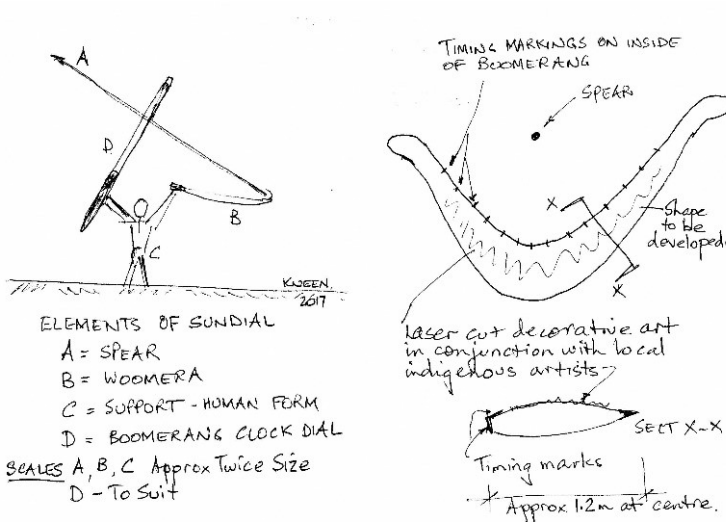 A
D
B
C
KNEEN.
2017
ELEMENTS OF SUNDIAL
A = SPEAR
B = WOOMERA
C = SUPPORT - HUMAN FORM
D = BOOMERANG CLOCK DIAL
SCALES A, B, C Approx Twice Size
D - To Suit
TIMING MARKINGS ON INSIDE
OF BOOMERANG
SPEAR
X
X
Shape
to be
developed
Laser cut decorative art
in conjunction with local
indigenous artists
SECT X-X
Timing marks
Approx 1.2m at centre.